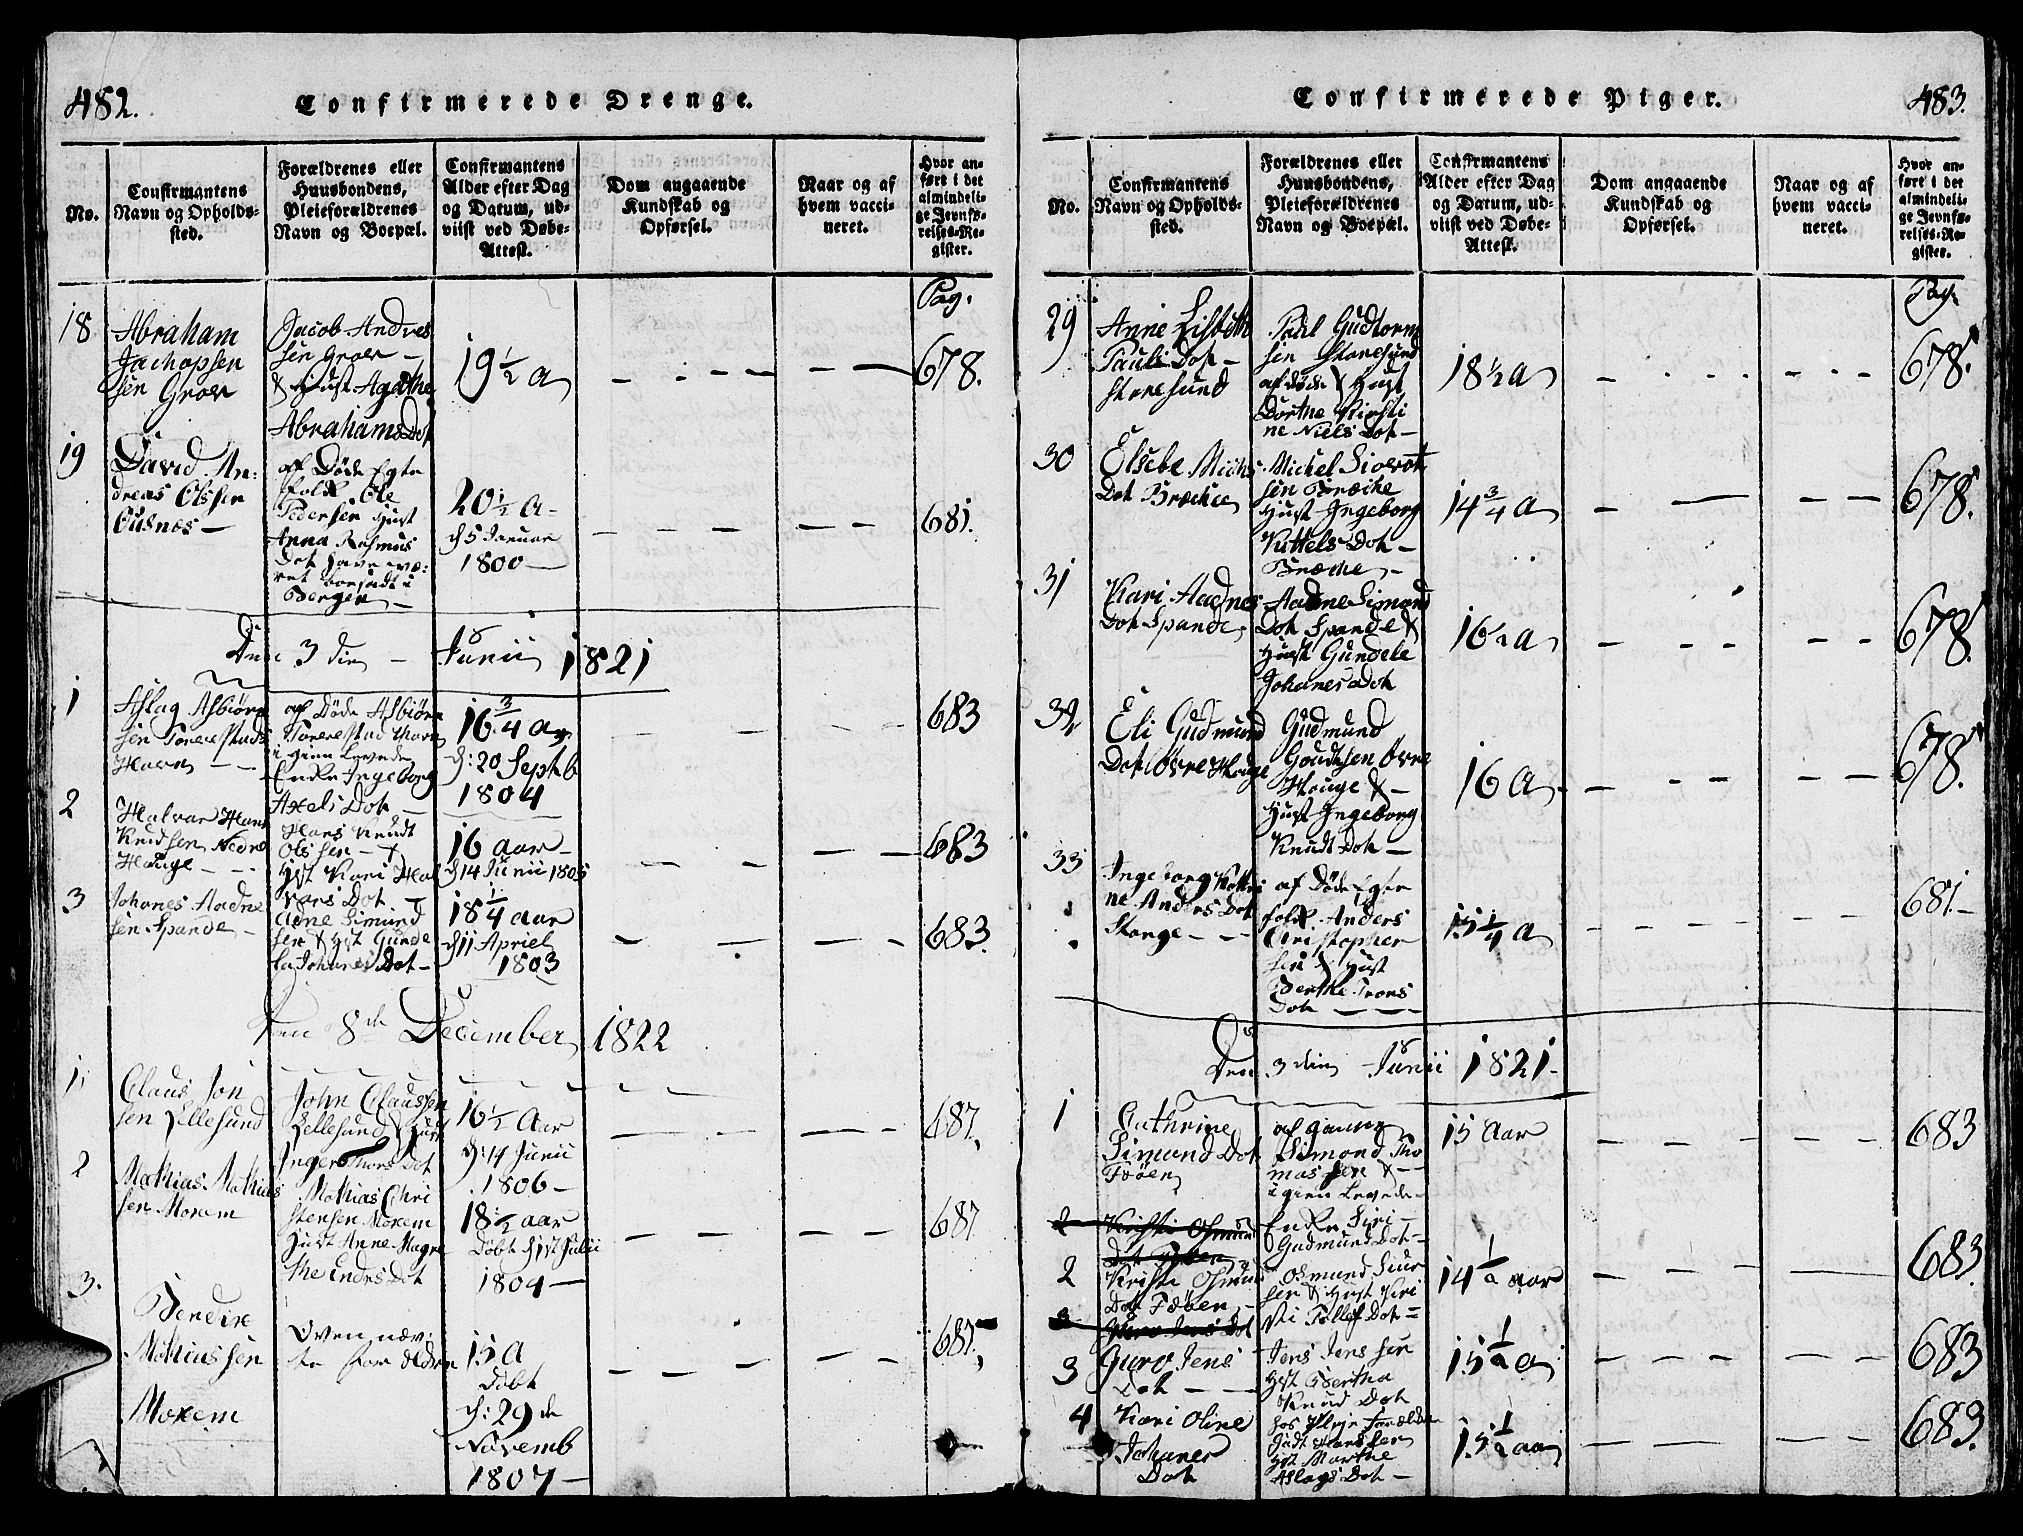 482.
Confirmerede Drenge.
No.
Confirmantens
Navn og Opholds-
sted.
Forældrenes eller
Huusbondens,
Pleieforældrenes
Navn og Boepæl.
Confirmantens
Alder efter Dag
og Datum, ud-
viist ved Døbe-
Attest.
Dom angaaende
Kundskab og
Opførsel.
Naar og af
hvem vacci-
neret.
Hvor an-
ført i det
almindeli-
ge Jevnfø-
relses-Re-
gister.
Pag.
18
Abraham
Jachopsen
sen Groer
Jacob Andres
sen Groer —
& Hust Agathe
Abrahams Dot
19 1/2 a
678.
19
David An:
dreas Olsen
Gusnes —
af Døde Egte
folk Ole
Pedersen Hust
Anna Rasmus
Dot have wæ:
ret boesadt i
Bergen —
20 1/2 A —
d 5 Januar
1800 —
681.
Den 3 die — Junii 1821
1
Aslag Asbiørn
sen Torrestads
Havn — —
af Døde Asbiørn
Torrestad Havn
i gien Levende
Enke Ingeborg
Axels Dot —
16 3/4 a
d: 20 Septb
1804
683
2
Halvar Hans
Knudsen Nedre
Houge — —
Hans Knudt
Olssen —
Hst Kari Hal
vars Dot —
16 aar —
d 14 Junii 1805
683
3
Johanes Aadne
sen Spande —
Adne Simund
sen & Hst Gunde
la Johanes Dot —
18 1/4 aar
d 11 Apriel
1803
683.
Den 8de December 1822
1.
Claus Jon
sen Zellesund
John Claussen
Zellesund & Hust
Inger Thors Dot
16 1/2 Aar
d: 14 Junii
1806 —
687.
2
Mathias Mathias
sen Moxem
Mathias Chri
stensen Moxem
Hust Anne Magre
the Endes Dot
18 1/2 aar
Døbt d 1st Julii
1804 —
687
3.
Bendix
Mathiassen
Moxem
Oven næv:
te foreldren
15 A
Døbt
d: 29 de
Novemb
1807 —
687.
Confirmerede Piger.
483.
No.
Confirmantens
Navn og Opholds-
sted.
Forældrenes eller
Huusbondens,
Pleieforældrenes
Navn og Boepæl.
Confirmantens
Alder efter Dag
og Datum, ud-
viist ved Døbe-
Attest.
Dom angaaende
Kundskab og
Opførsel.
Naar og af
hvem vacci-
neret.
Hvor an-
ført i det
almindeli-
ge Jevnfø-
relses-Re-
gister.
Pag.
29
Anne Lisbeth
Pauls Dot —
Storesund
Paul Gudtorm
sen Storesund
af Døde & Hust
Dorthe Kirsti
ne Niels Dot —
18 1/2 a
678.
30
Elsebe Michs
Dot Bræcke
Michel Siovert
sen Bræcke
Hust Ingeborg
Kittels Dot —
Bræcke —
14 3/4 a
678.
31
Kari Aadnes
Dot Spande
Aadne Simond
Dot Spande &
Hust Gundele
Johanes Dot
16 1/2 a
678.
32
Eli Gudmund
Dot Øvre Houge
Gudmund
Goudtsen Øvre
Houge & —
Hust Ingeborg
Knudt Dot —
16 a
678.
33
Ingeborg Kathri
ne Anders Dot
Stange — —
af Døde Egte
folk Anders
Christopher
sen & Hust
Berthe Trons
Dot — — —
15 1/4 a
681. —
Den 3 die Junii 1821.
1
Cathrine
Simond Dot
Føøen
Simond Tho
massen & —
i gien Levede —
Enke Siri —
Gudmund Dot —
15 Aar
683
2 Kirsti Osmund
Dot Føøen
2
Kirsti Osmund
Dot Føøen —
Osmund Siur
sen & Hust Kiri
sti Tollef Dot —
14 1/2 aar
683.
3 Guro Jens Dot
3
Guro Jens
Dot — —
Jens Jenssen
Hst Bertha
Knud Dot
15 1/2 a
683
4
Kari Oline
Johanes
Dot
hos Pleje Foreldren
Hanssen
Hst Marthe
Aslags Dot —
15 1/2 aar
683.